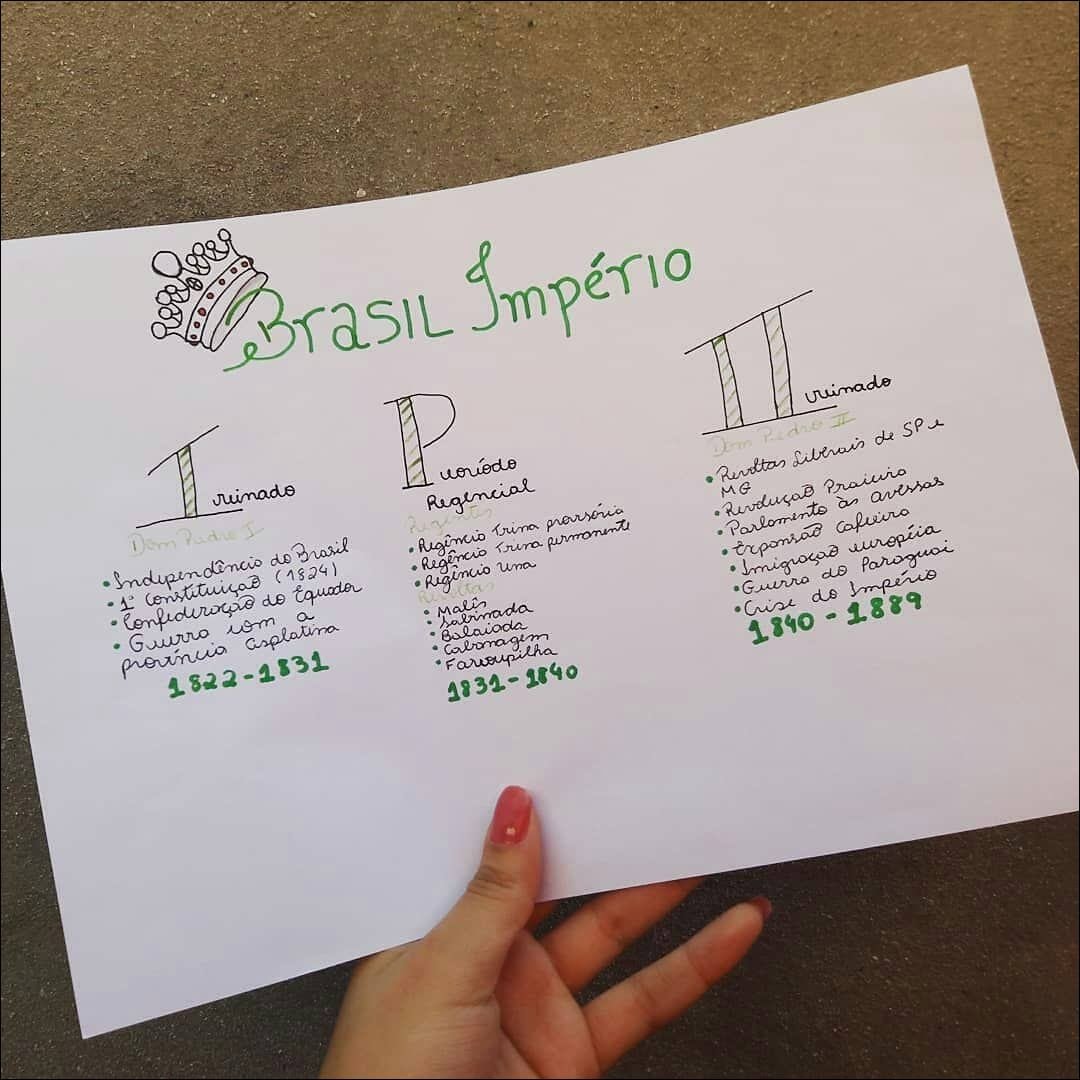 Brasil Império
I reinado
Dom Pedro I
• Independência do Brasil
• 1ª Constituição (1824)
• Confederação do Equador
• Guerra com a
província Cisplatina
1822-1831
Período
Regencial
Regentes
• Regência Trina provisória
• Regência Trina permanente
• Regência Una
Revoltas
• Malês
• Sabinada
• Balaiada
• Cabanagem
• Farroupilha
1831-1840
II reinado
Dom Pedro II
• Revoltas Liberais de SP e
MG
• Revolução Praieira
• Parlamento às avessas
• Expansão Cafeeira
• Imigração européia
• Guerra do Paraguai
• Crise do Império
1840-1889